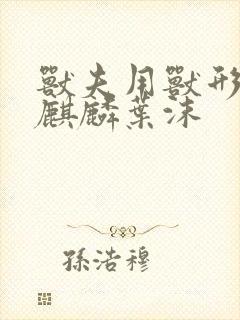 獸夫用獸形
麒麟葉沫
孫浩穆